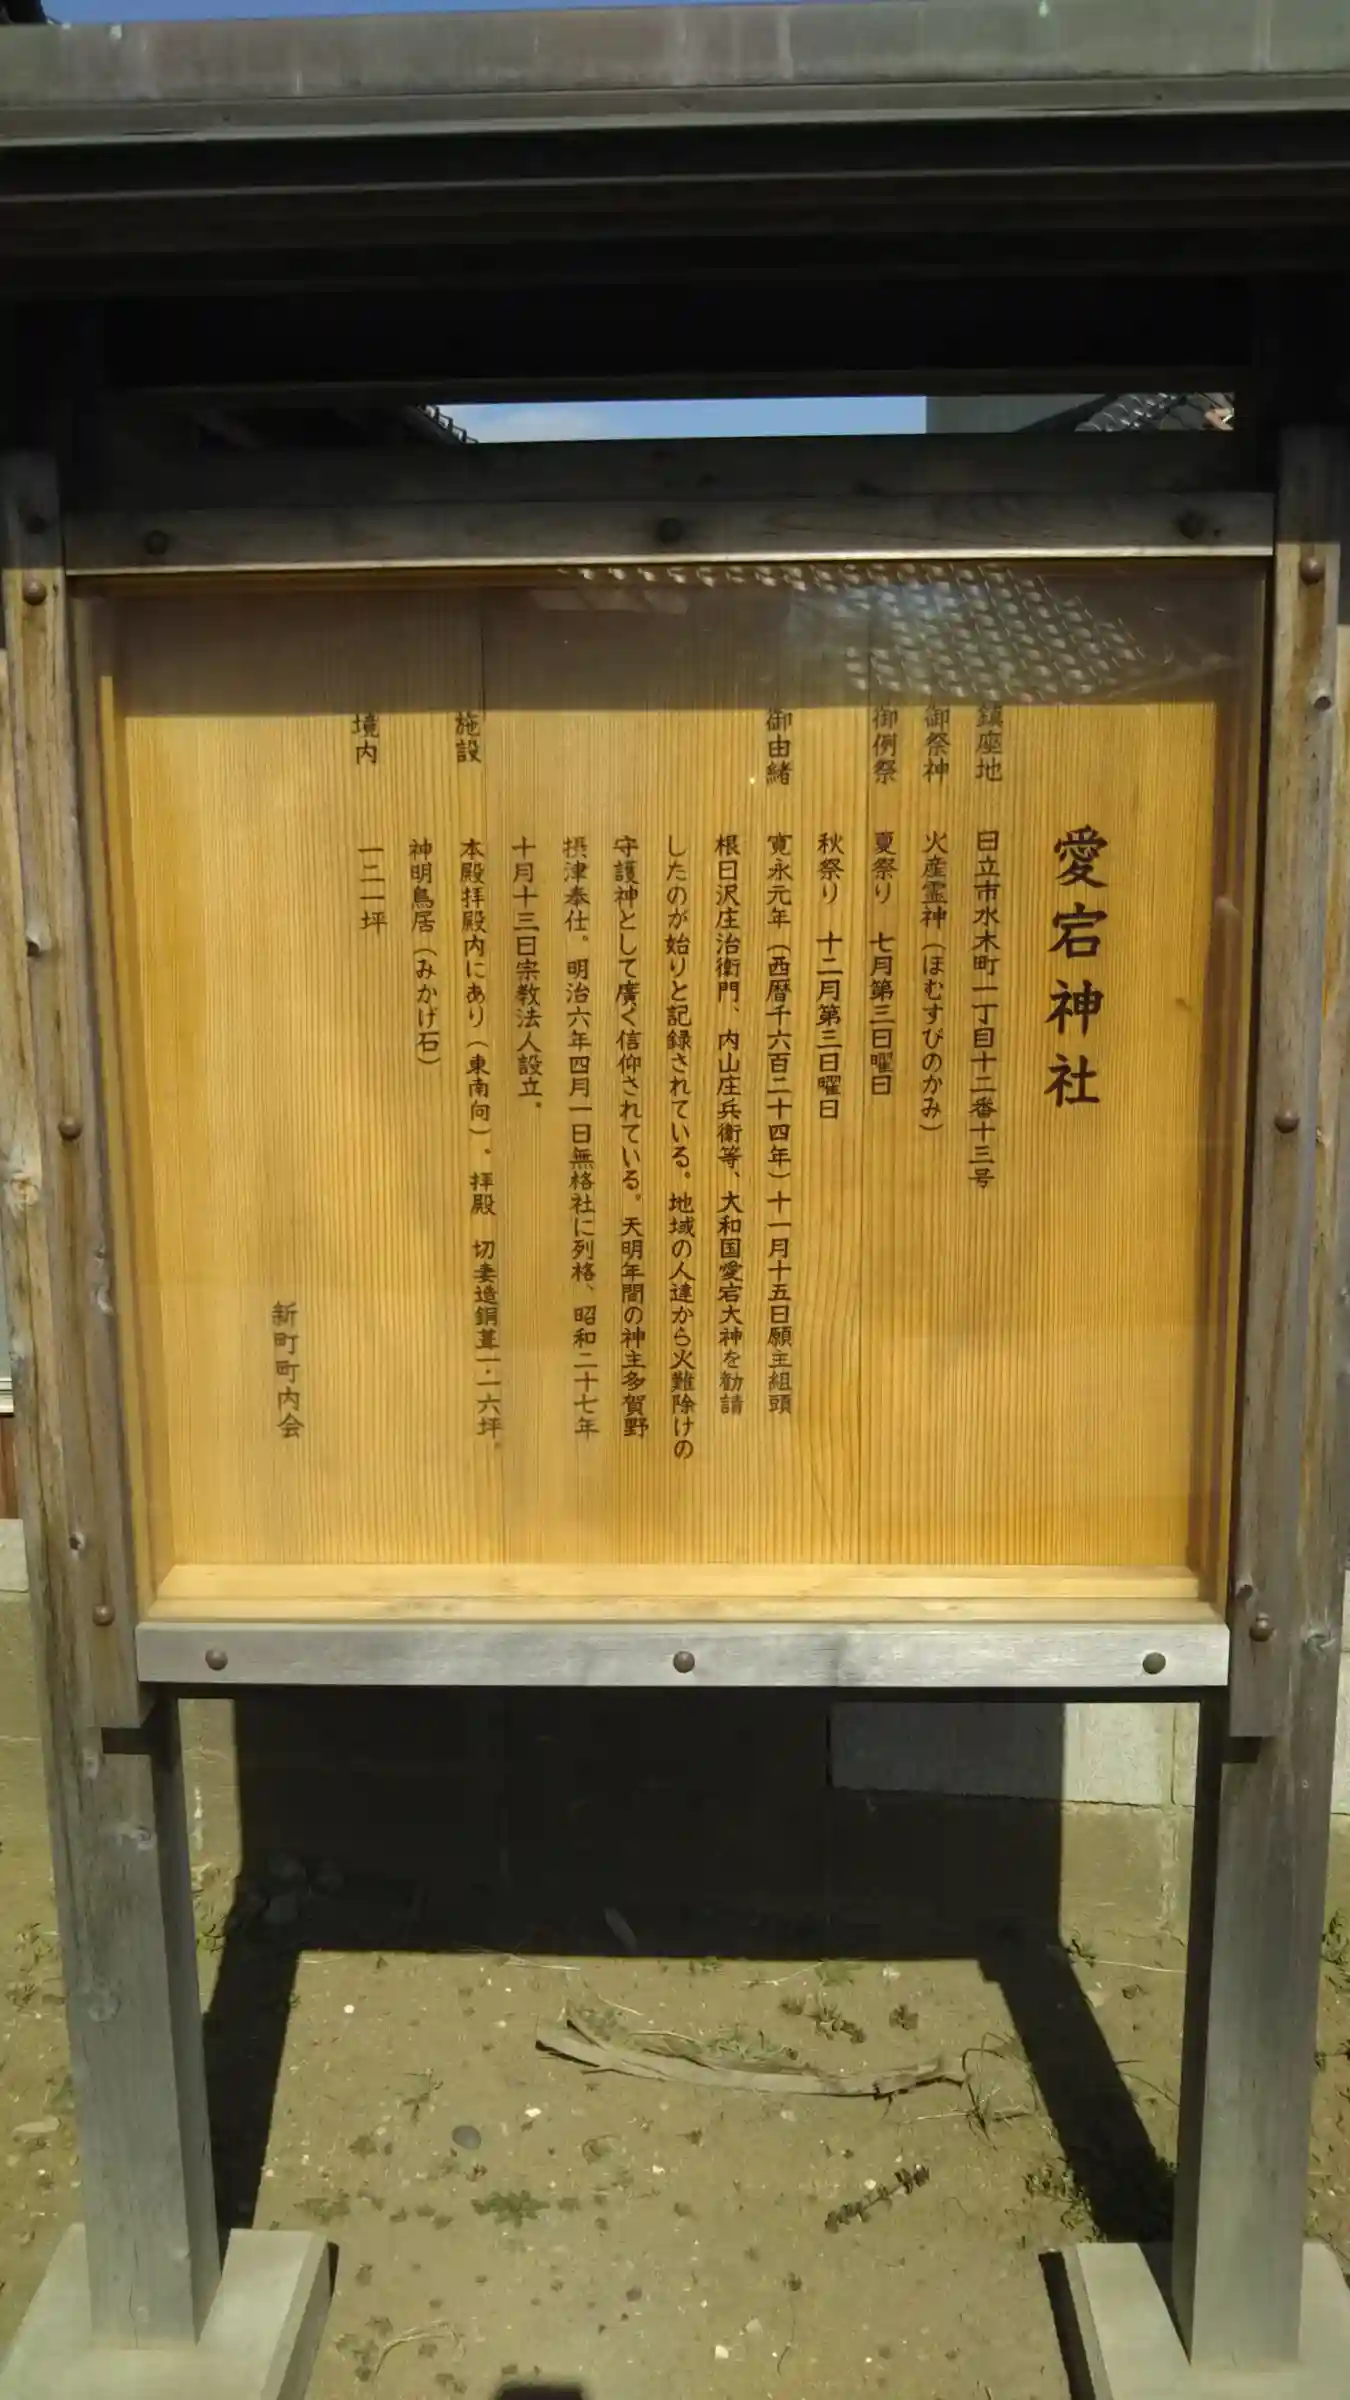 愛宕神社
鎮座地 日立市水木町一丁目十二番十三号
御祭神 火産霊神（ほむすびのかみ）
御例祭 夏祭り 七月第三日曜日
秋祭り 十二月第三日曜日
御由緒 寛永元年（西暦千六百二十四年）十一月十五日願主組頭
根日沢庄治衛門、内山庄兵衛等、大和国愛宕大神を勧請
したのが始りと記録されている。地域の人達から火難除けの
守護神として廣く信仰されている。天明年間の神主多賀野
摂津奉仕。明治六年四月一日無格社に列格、昭和二十七年
十月十三日宗教法人設立。
施設 本殿拝殿内にあり（東南向）。拝殿 切妻造銅葺一・一六坪。
神明鳥居（みかげ石）
境内 一二一坪
新町町内会